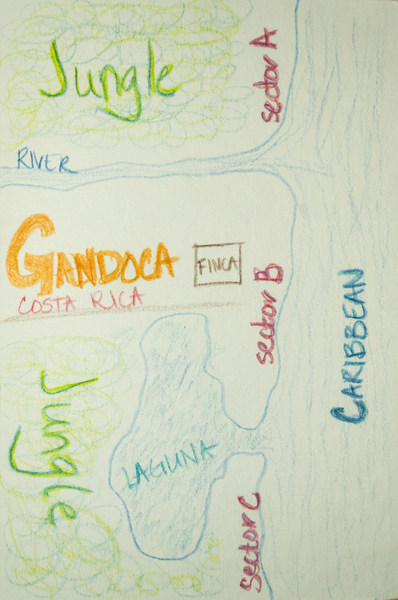 Jungle
sector A
RIVER
GANDOCA
FINCA
COSTA RICA
sector B
CARIBBEAN
Jungle
LAGUNA
sector C